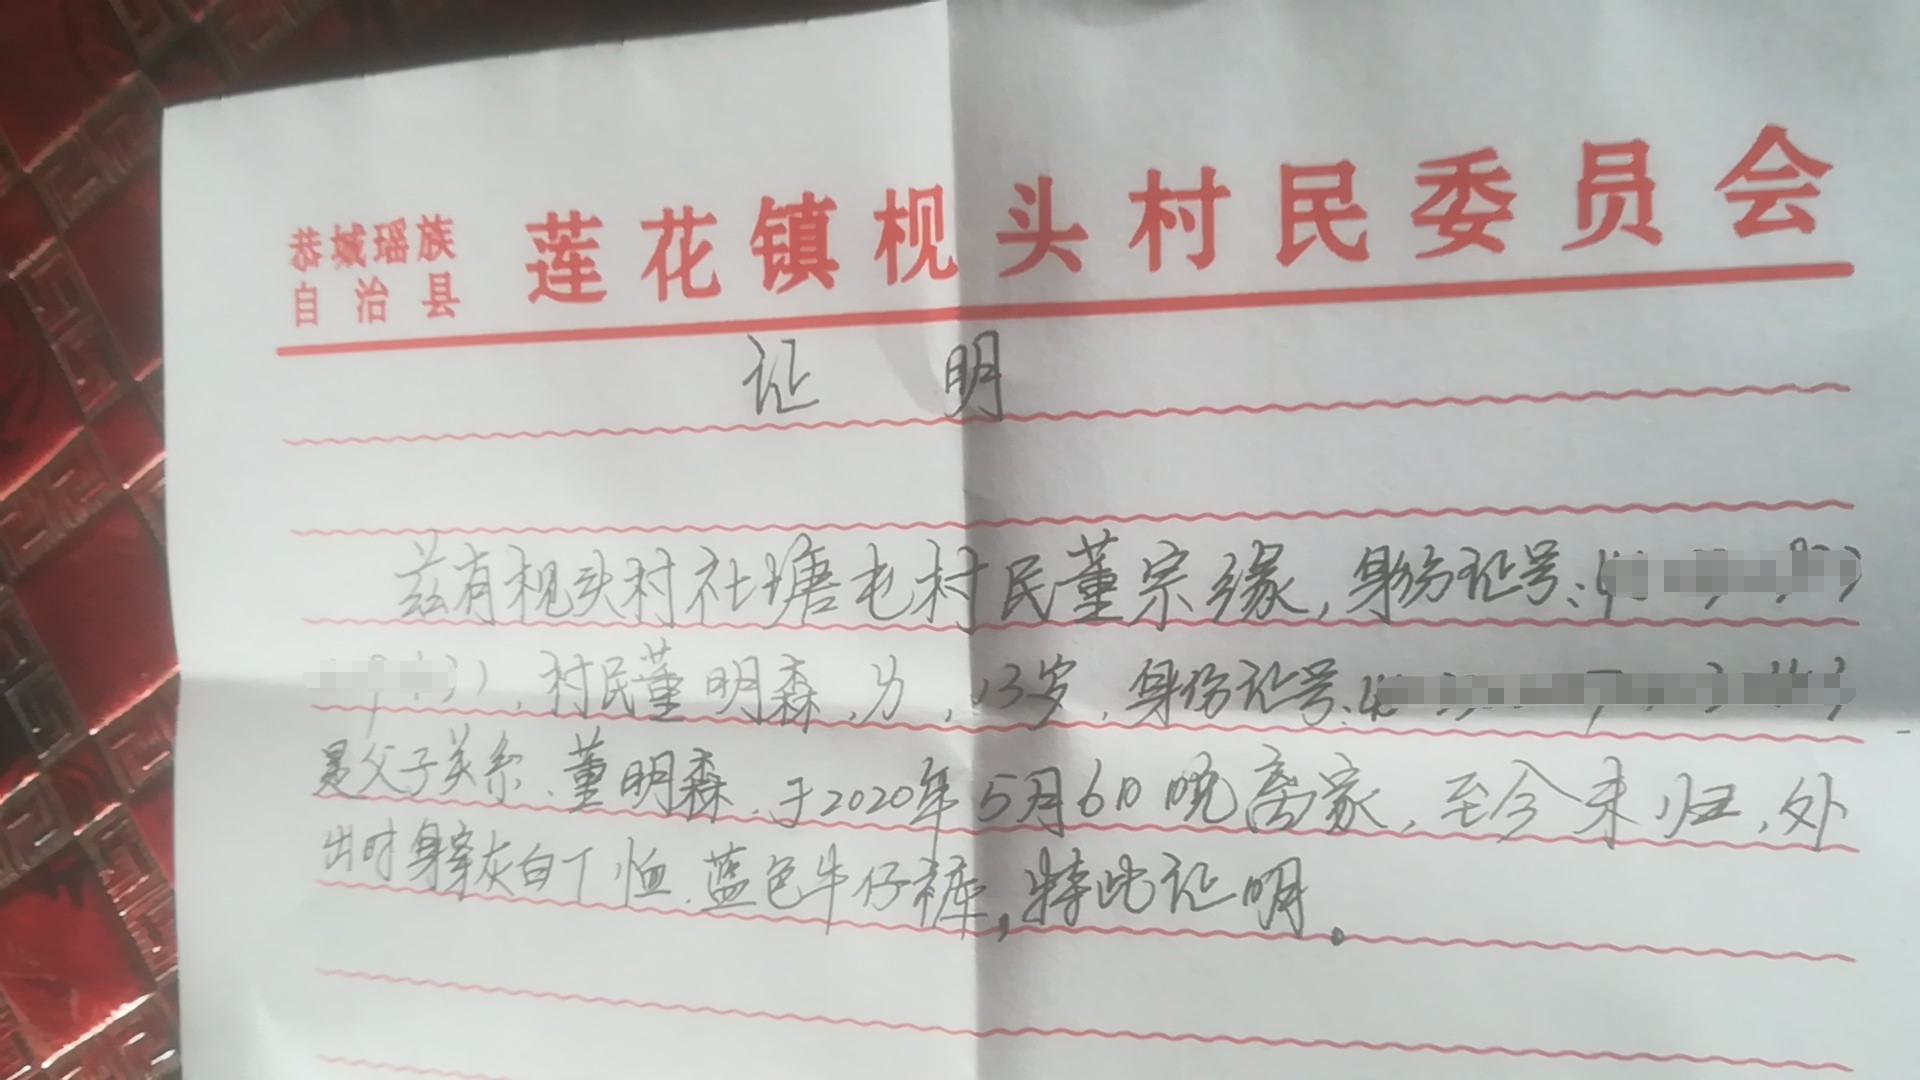 恭城瑶族
自治县
莲花镇枧头村民委员会
证 明
兹有枧头村社塘屯村民董宗缘，身份证号：
村民董明森，为，13岁，身份证号：
是父子关系、董明森，于2020年5月6日晚离家，至今未归，外
出时身穿灰白T恤、蓝色牛仔裤，特此证明。